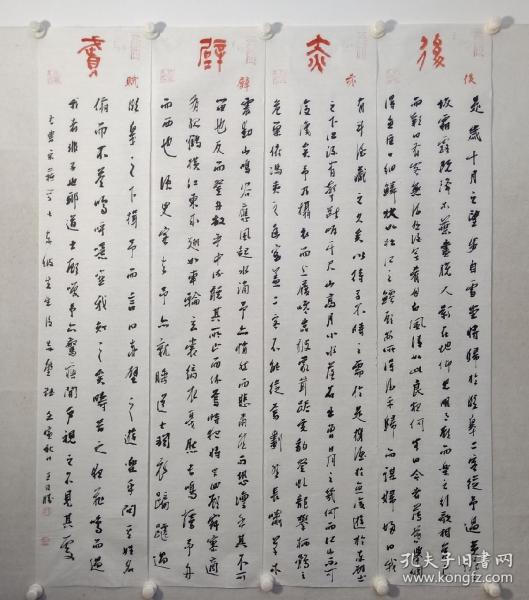 後
赤
壁
賦
後
是歲十月之望步自雪堂將歸於臨皋二客從予過黃泥之
坂霜露既降木葉盡脫人影在地仰見明月顧而樂之行歌相答
而歎曰有客無酒有酒無肴月白風清如此良夜何客曰今者薄暮舉網
得魚巨口細鱗狀如松江之鱸顧安所得酒乎歸而謀諸婦婦曰我
赤
有斗酒藏之久矣以待子不時之需於是攜酒與魚復遊於赤壁
之下江流有聲斷岸千尺山高月小水落石出曾日月之幾何而江山不可
復識矣予乃攝衣而上履巉岩披蒙茸踞虎豹登虬龍攀栖鶻之
危巢俯馮夷之幽宮蓋二客不能從焉劃然長嘯草木
壁
震動山鳴谷應風起水涌予亦悄然而悲肅然而恐凜乎其不可
留也反而登舟放乎中流聽其所止而休焉時夜將半四顧寂寥適
有孤鶴橫江東來翅如車輪玄裳縞衣戛然長鳴掠予舟
而西也須臾客去予亦就睡道士羽衣蹁躚過
賦
臨皋之下揖予而言曰赤壁之遊樂乎問其姓名
俯而不答嗚呼噫嘻我知之矣疇昔之夜飛鳴而過
我者非子也耶道士顧笑予亦驚寤開戶視之不見其處
東坡先生後赤壁賦
孔夫子旧书网
www.kongfz.com